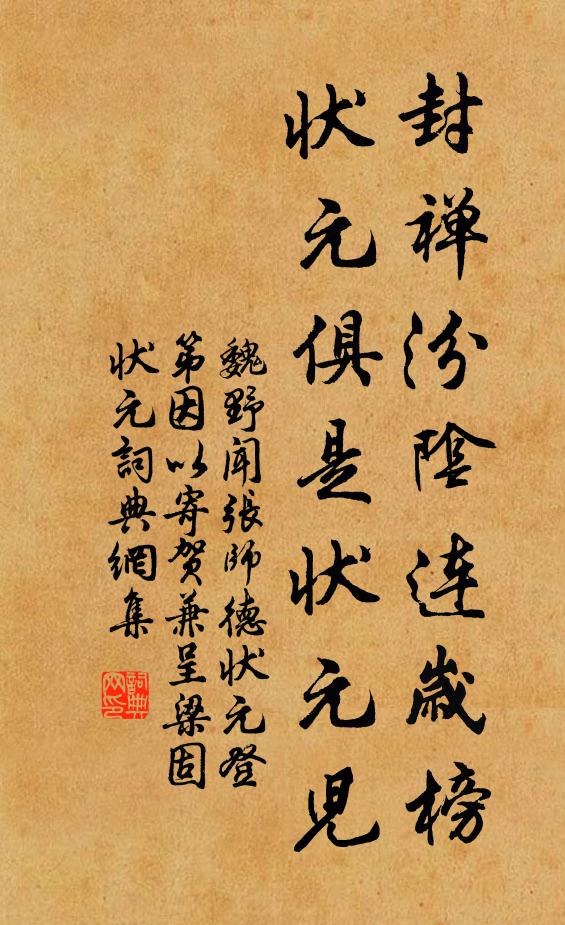 封禅汾陰连歲榜
状元俱是状元児
魏野闻張師德状元登
第因以寄贺兼呈梁固
状元詞典網集
詞典
网印